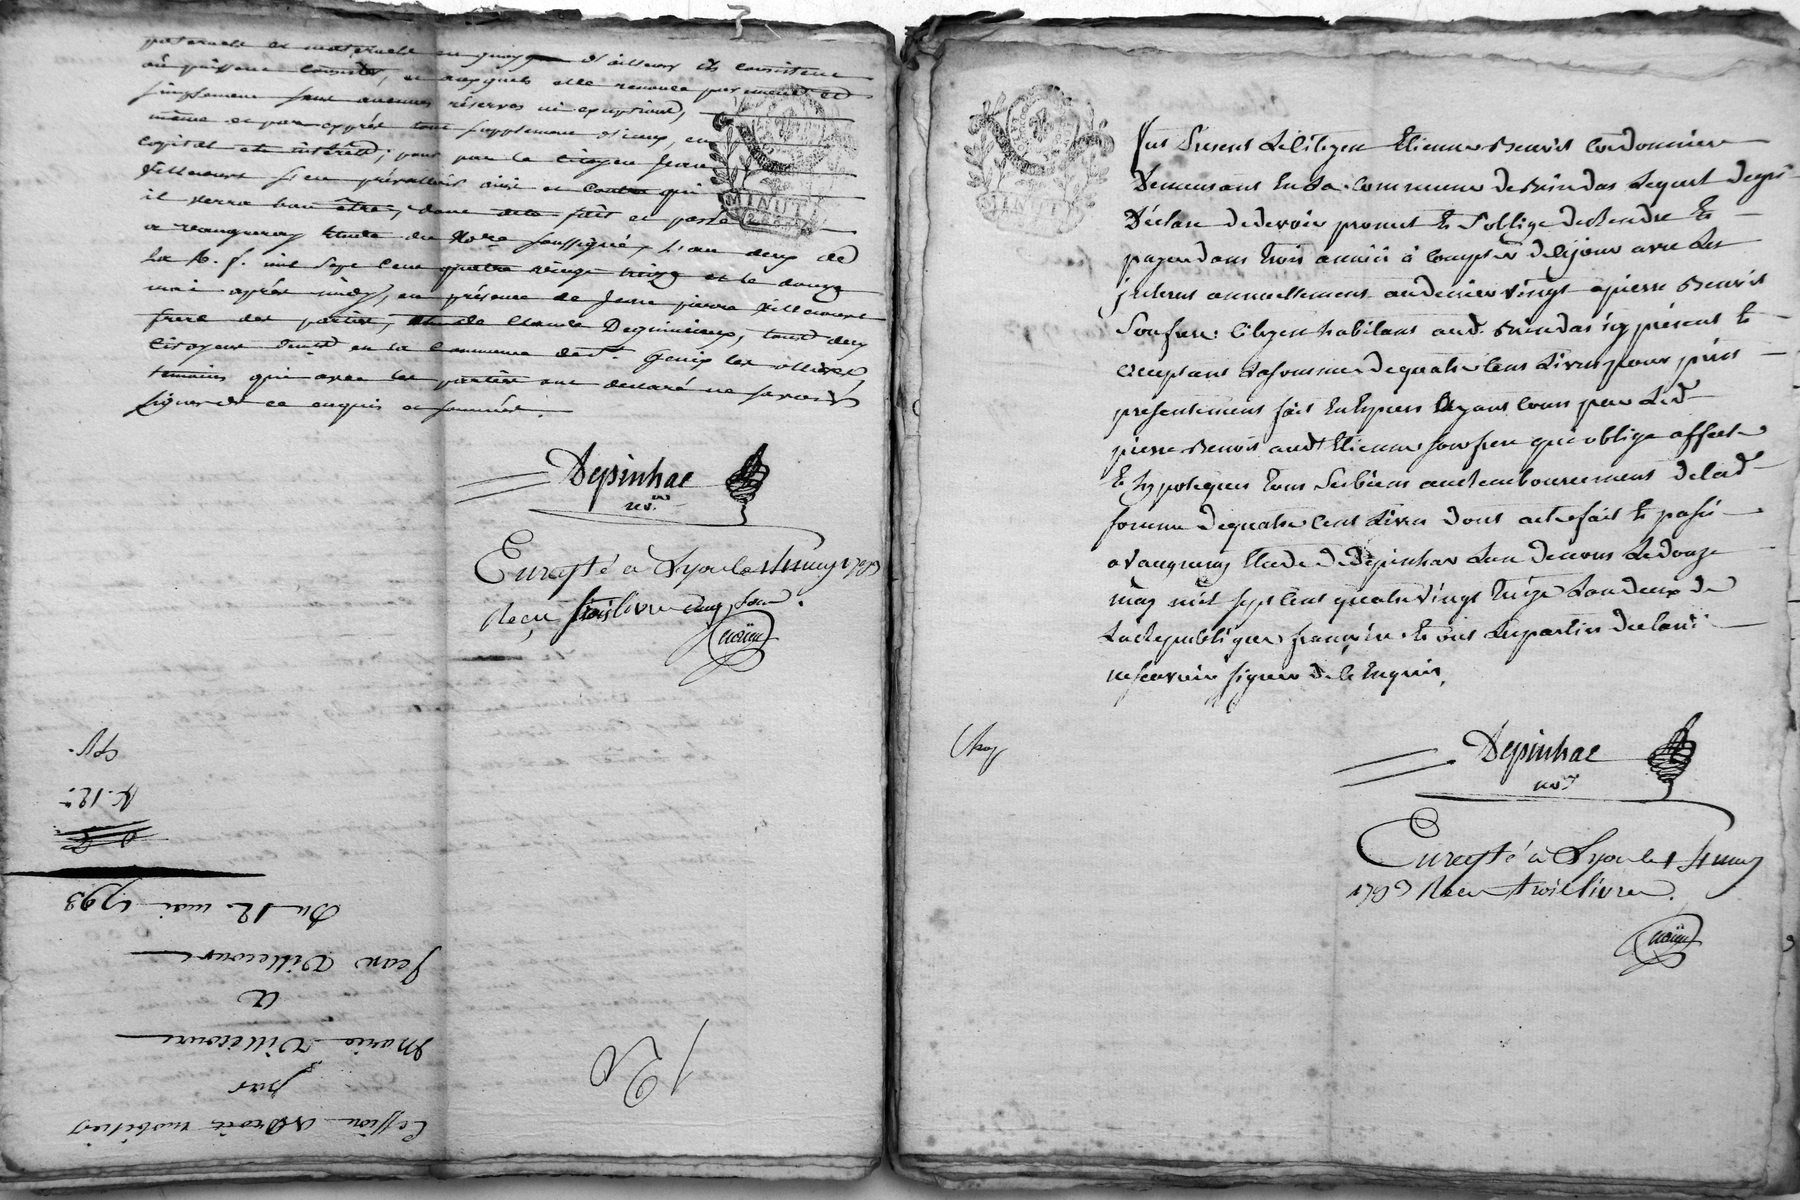 paternels et maternels en quoy d'ailleurs ils consistent
ou puissent consister, auxquels elle renonce purement et
simplement sans aucunes réserves ni exceptions,
même et par exprès tout supplement d'iceux, en
capital et intérêts; pour par le citoyen Jean
Villecourt s'en prévalloir ainsi et contre qui
il verra bon être; dont acte fait et passé
a vaugneray étude du No.re soussigné, l'an deux de
la R. f. mil sept cent quatre vingt treize et le douze
mai après midy, en présence de Jean pierre Villecourt
frere des parties, et de Claude, tous deux
citoyens en la commune de St. Genis les ollières,
temoins qui avec les parties ont declaré ne savoir
signer de ce enquis et sommés.
Depinhac
no.re
Enregté a Lyon le 14 may 1793
Recu trois livres
Du 12 mai 1793
Jean Villecourt
a
Marie Villecourt
par
Cession de Droits mobiliers
120
MINUT
MINUT
fut Présent Le Citoyen Etienne Benoit Cordonnier
Demeurant En La Commune de Brindas Lequel De gré
Déclare De devoir promet Et S'oblige De Rendre Et
payer dans trois années à Compter De Cejour avec Les
jnterets annuellement au denier vingt a pierre Benoit
Son frere Citoyen habitant aud. Brindas icy présent Et
acceptant La somme De quatre Cent Livres pour prêt
presentement fait En Especes Ayant Cours par Led.
pierre Benoit aud.t Etienne Son frere qui oblige affecte
Et hypoteque tous Ses biens au Remboursement De lad.
somme De quatre Cent Livres Dont acte fait Et passé
a Vaugneray Etude De Depinhac Lan De nous Le Douze
may mil sept Cent quatre Vingt treize Lan Deux De
La Republique francoise Et ont Les parties Declaré
ne scavoir signer De Ce Enquis,
Depinhac
no.re
Enregté à Lyon le 14 may
1793 Recu trois livres.